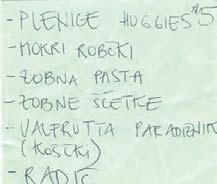 - PLENICE HUGGIES 5
- MOKRI ROBČKI
- ZOBNA PASTA
- ZOBNE ŠČETKE
- VALFRUTTA PARADIŽNIK
(KOŠČKI)
- RADIČ